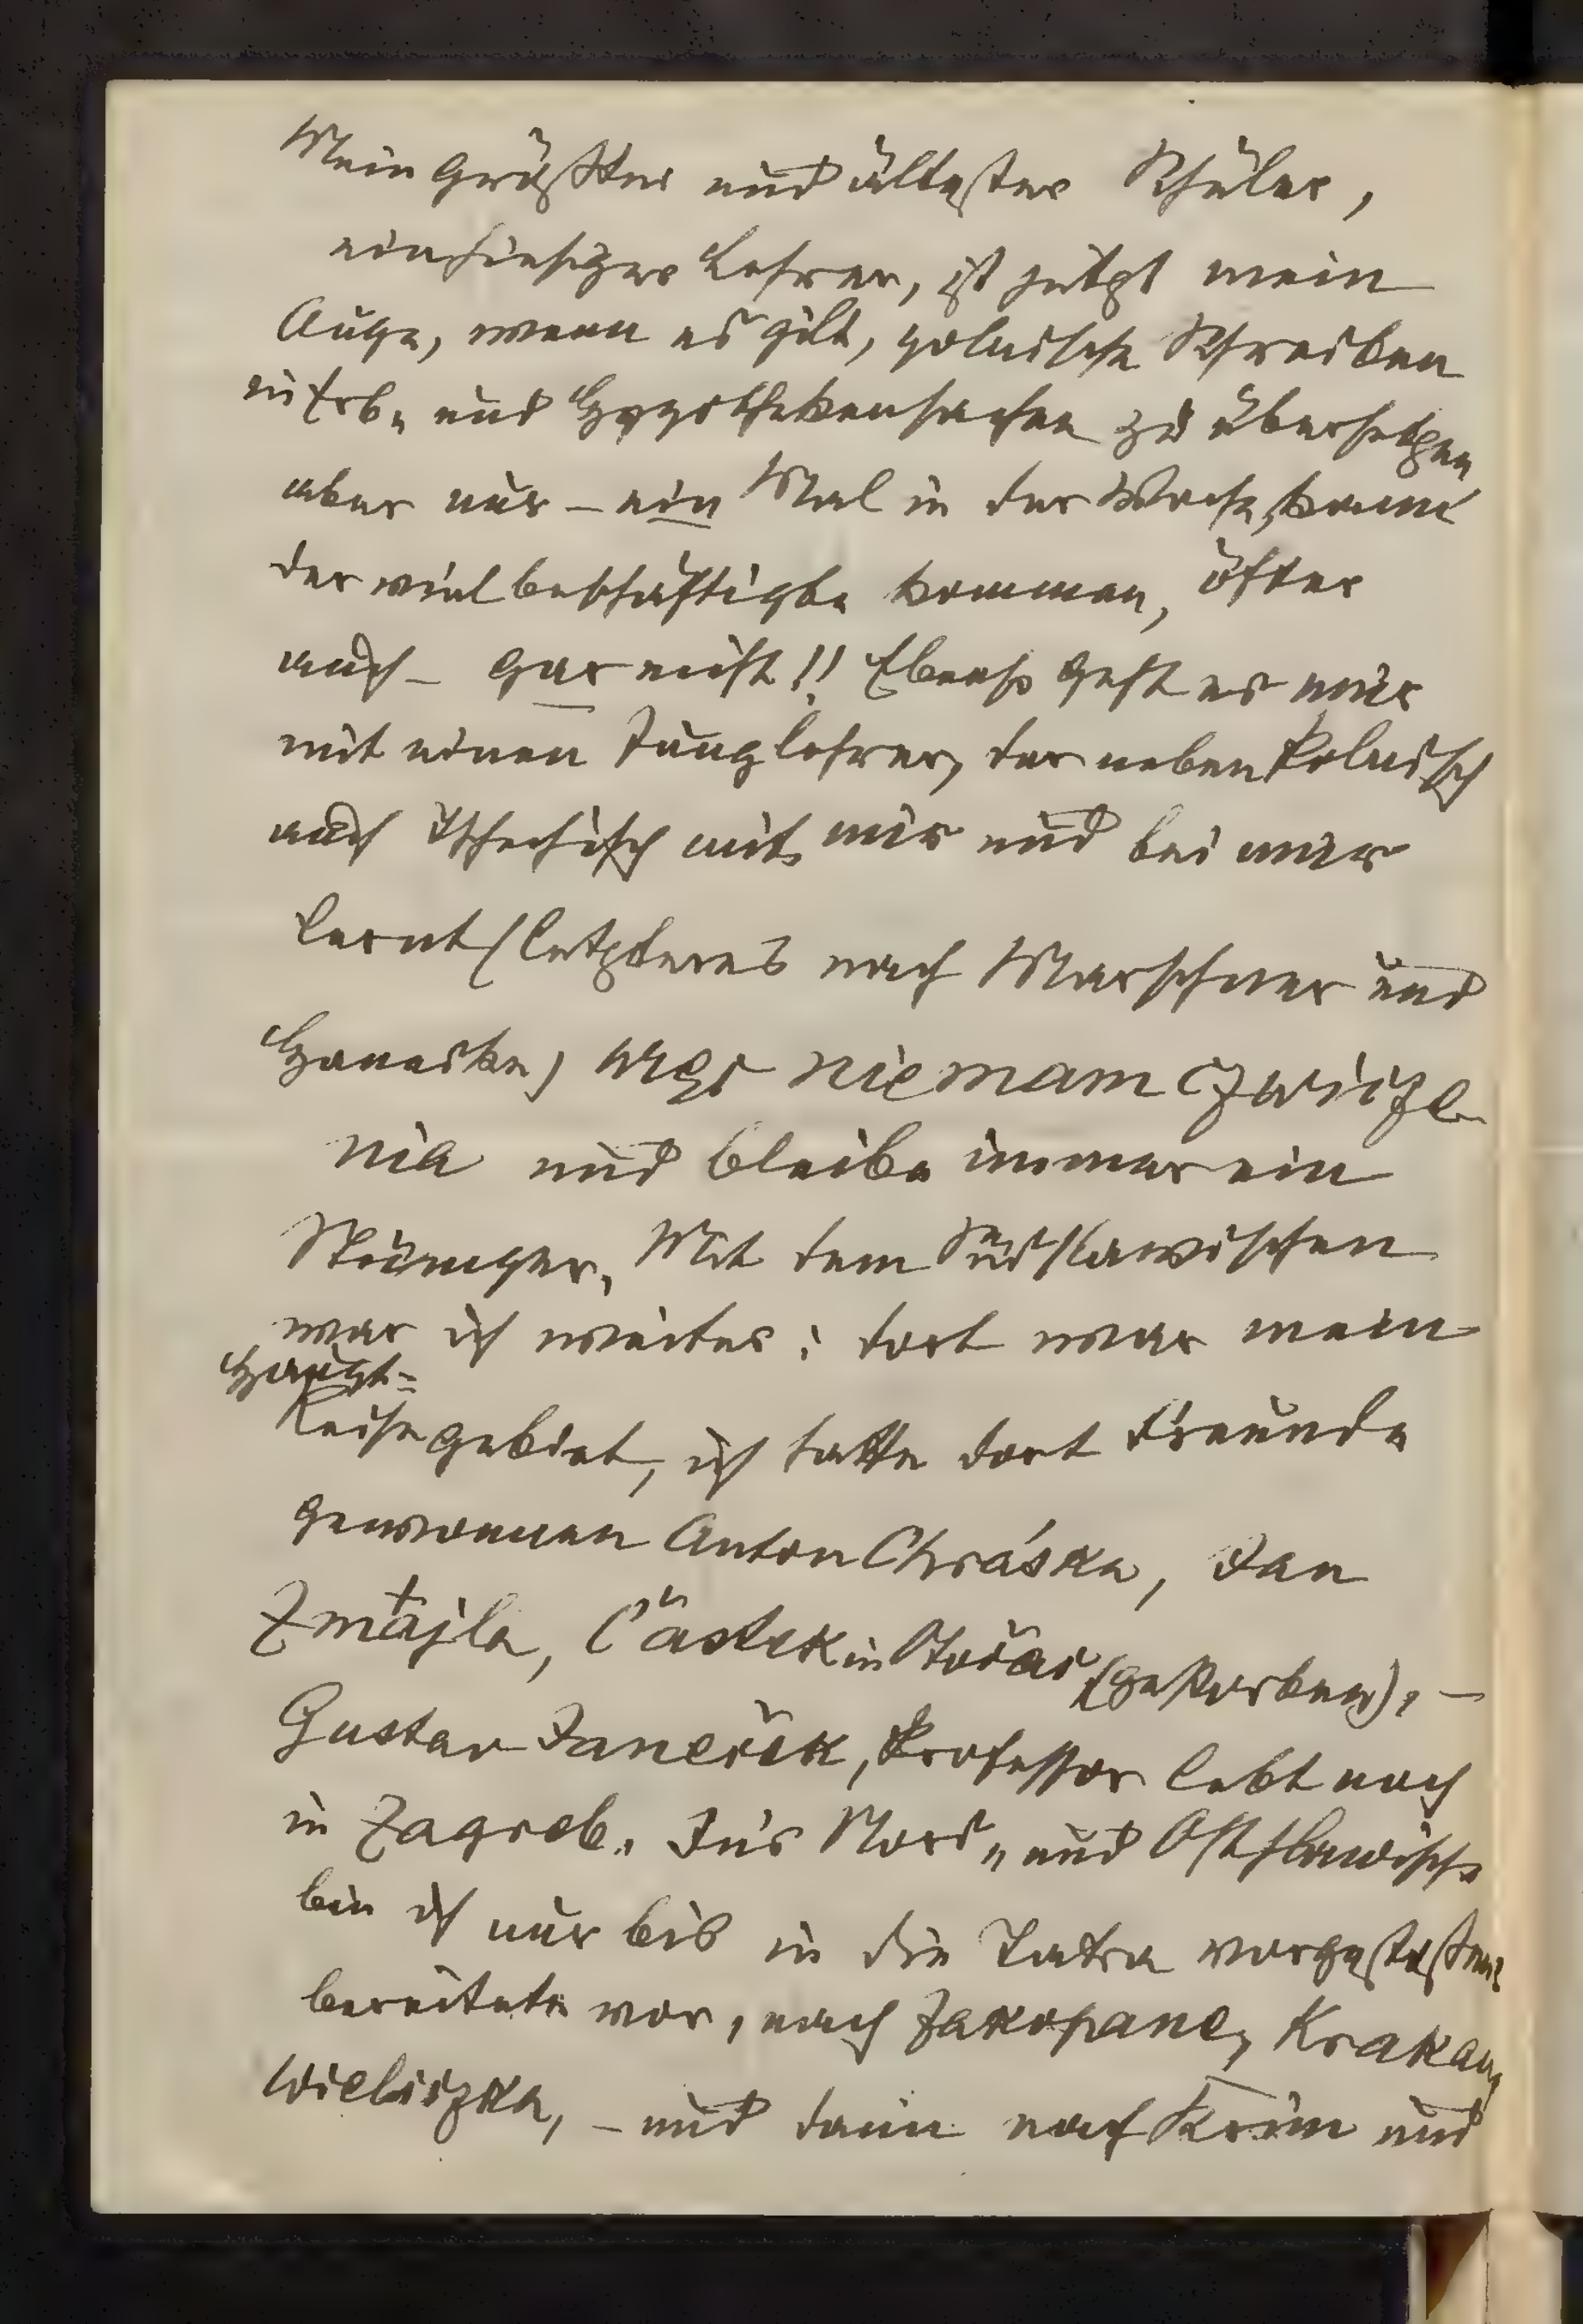 Mein größter und ältester Schüler,
ein hiesiger Lehrer, ist jetzt mein
Auge, wenn es gilt, polnische Schreiben
in Erb- und Hypothekensachen zu übersetzen
aber nur – ein Mal in der Woche, kann
der vielbeschäftigte kommen, öfter
auch – gar nicht!! Ebenso geht es mir
mit einen Junglehrer, der neben Polnisch
auch Tschechisch mit mir und bei mir
lernt (letzteres nach Marschner und
Haneske) niemam czwicze
nia und bleibe immer ein
Stümper. Mit dem Südslawischen
war ich weiter: dort war mein
Haupt=
Reisegebiet, ich hatte dort Freunde
gewonnen Anton Chráska, Jan
Zmájla, Částek in (gestorben), –
Gustav Janeček, Professor lebt noch
in Zagreb. In's Nord- und Ostslawische
bin ich nur bis in die Tatra vorgestoßen
bereitete vor, nach Zakopane, Krakau,
Wieliczka, – und dann nach Krim und